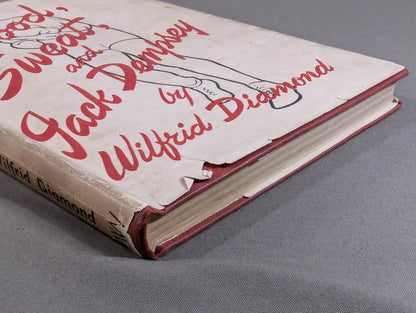 ood,
Sweat,
and
Jack Dempsey
by
Wilfrid Diamond
Wilfrid Diamond